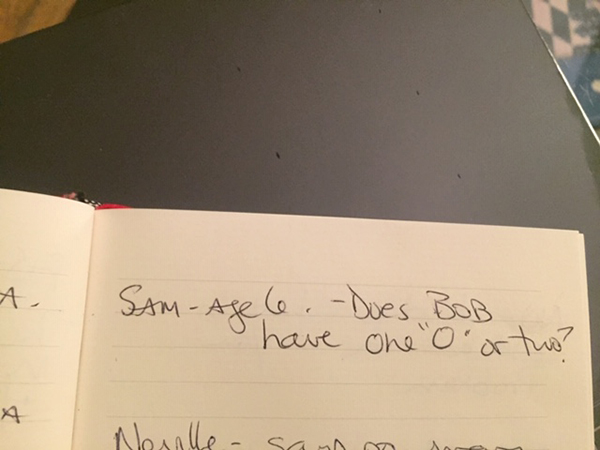 A.
SAM - Age 6. - Does BOB
have one "O" or two?
A